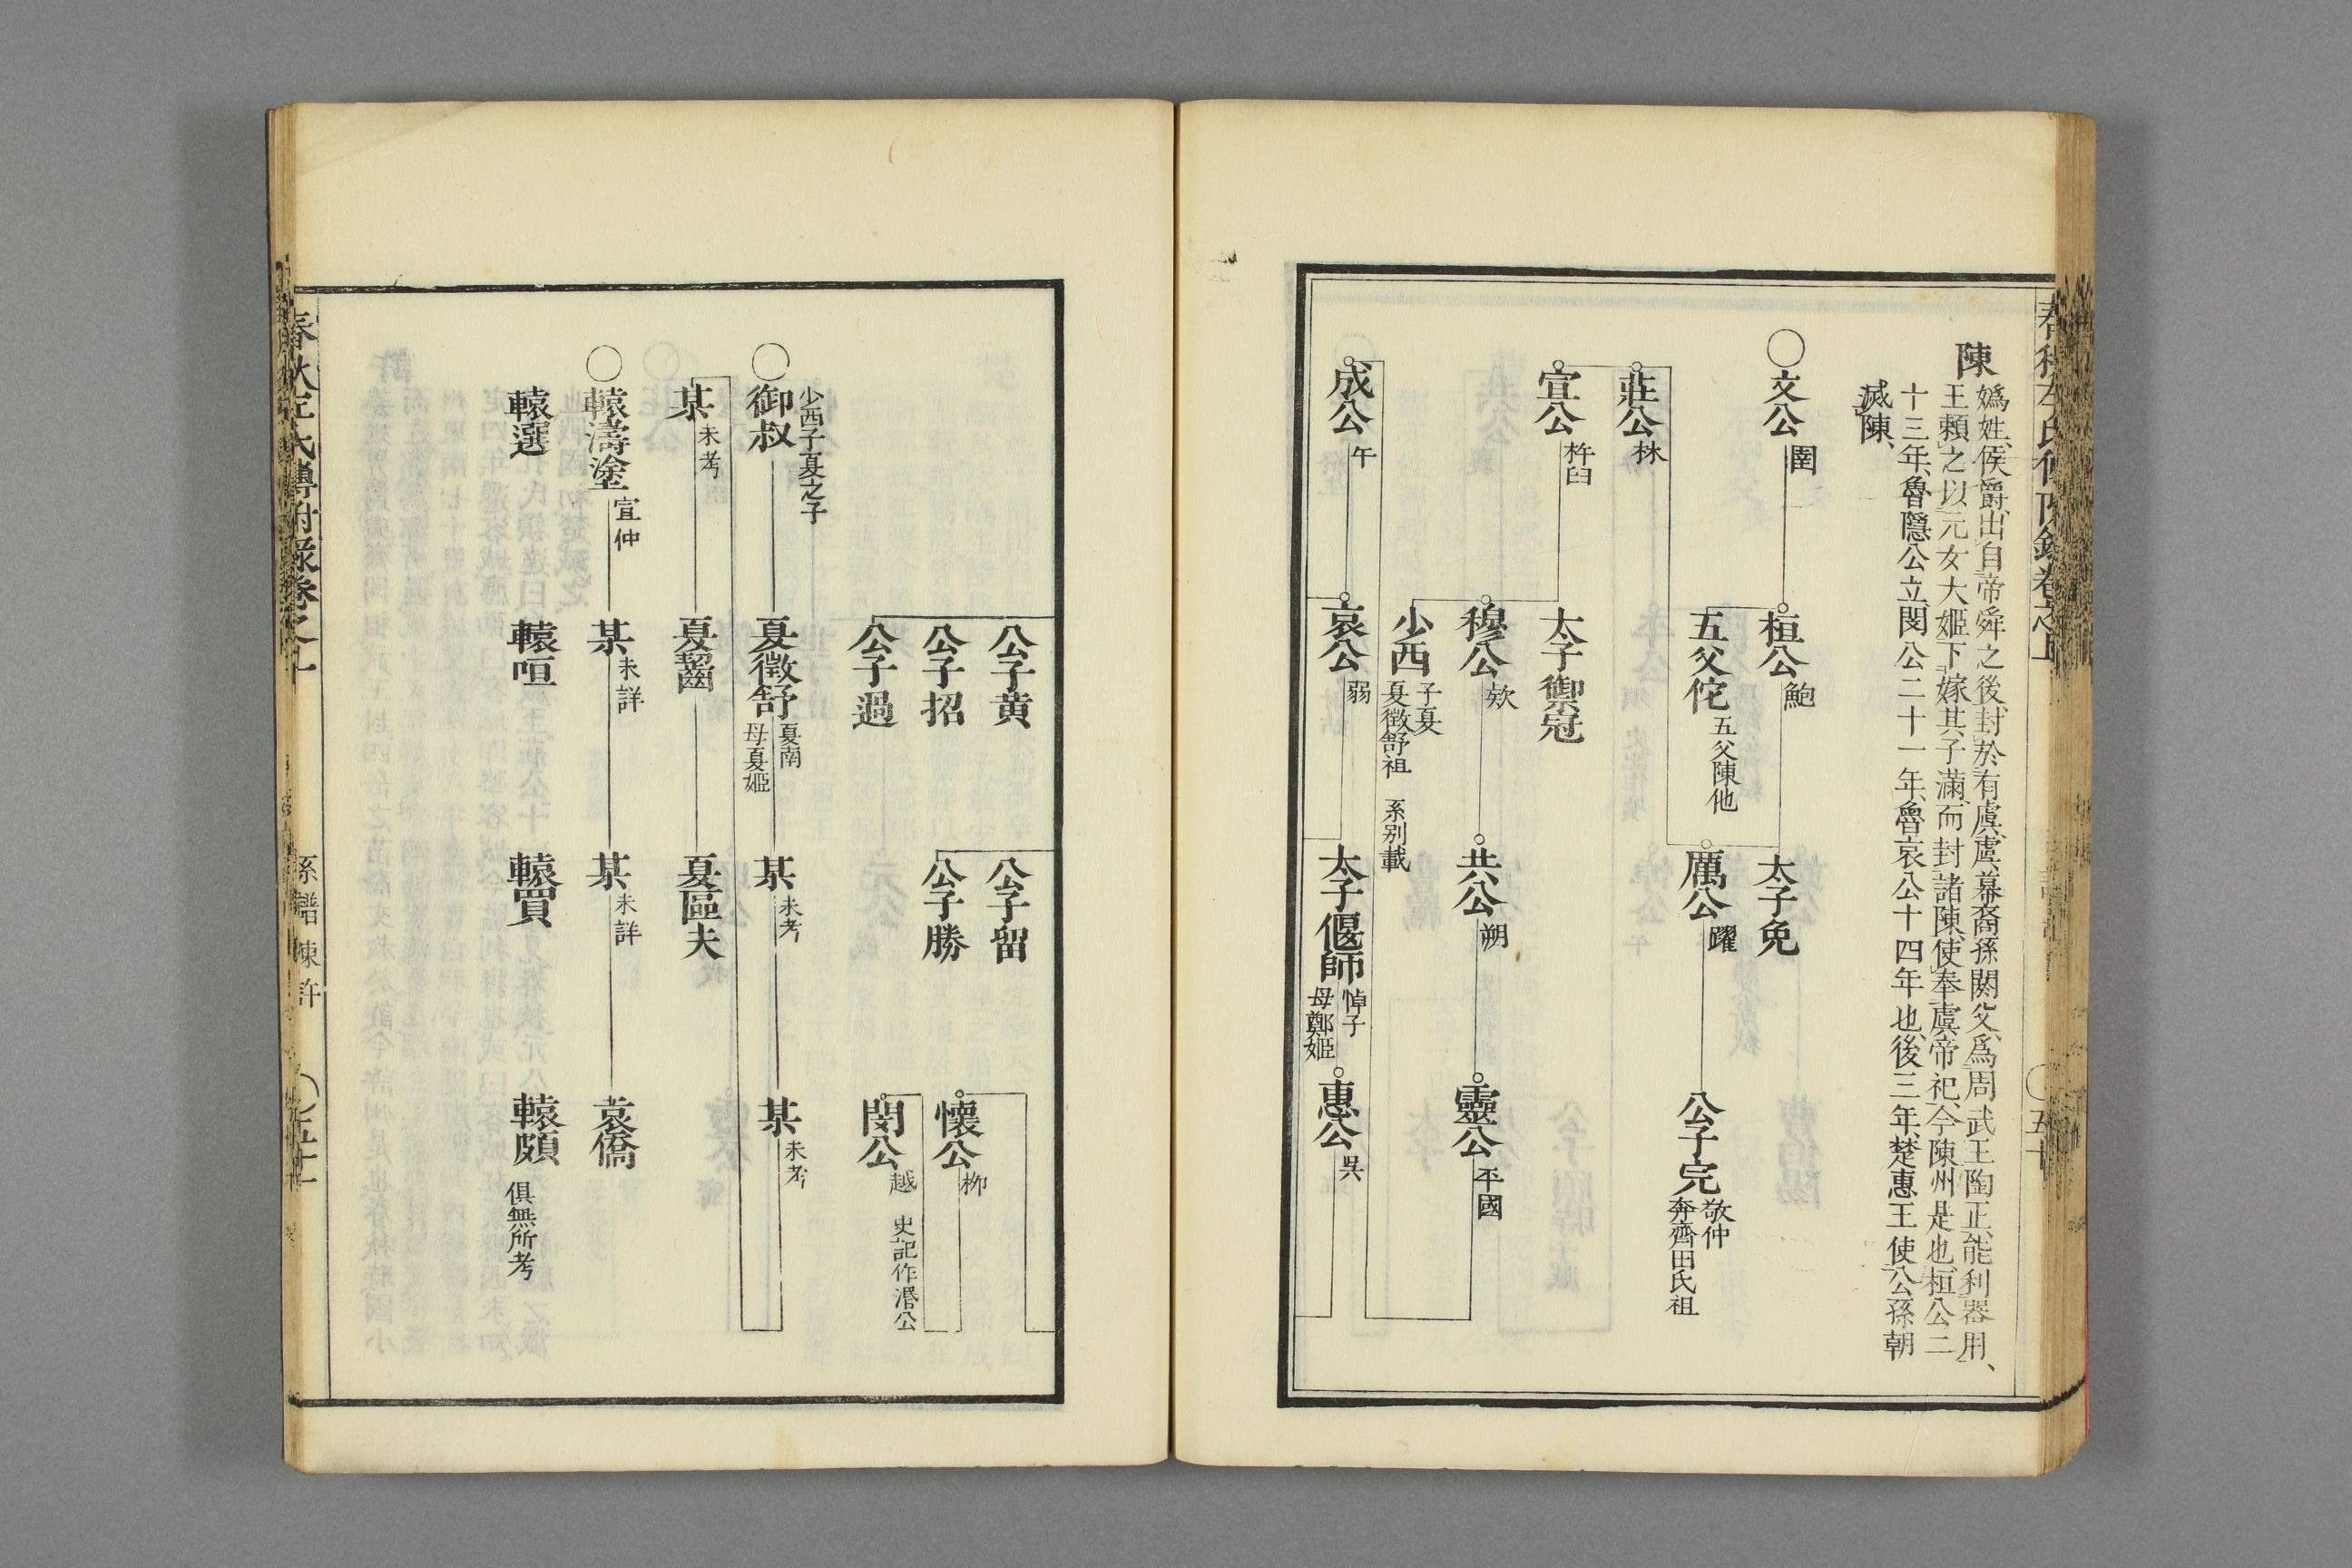 陳
媯姓、侯爵、出自帝舜之後、封於有虞、虞幕裔孫閼父、爲周武王陶正、能利器用、
王賴之以元女大姬、下嫁其子滿、而封諸陳、使奉虞帝祀、今陳州是也、桓公二
十三年、魯隱公立、閔公二十一年、魯哀公十四年也、後三年、楚惠王使公孫朝
滅陳、
○文公 圉
桓公 鮑
太子免
五父佗 五父陳他
厲公 躍
公子完 敬仲
奔齊田氏祖
莊公 林
宣公 杵臼
太子御寇
穆公 欵
共公 朔
靈公 平國
少西 子夏
夏徵舒祖 系別載
成公 午
哀公 弱
太子偃師 悼子
母鄭姬
惠公 吳
五十
公子黃
公子留
公子招
公子勝
懷公 柳
公子過
閔公 越 史記作湣公
少西子夏之子
○御叔
夏徵舒 夏南
母夏姬
某 未考
某 未考
某 未考
夏齧
夏區夫
○轅濤塗 宣仲
某 未詳
某 未詳
袁僑
轅選
轅咺
轅買
轅頗 俱無所考
春秋左氏傳附錄卷之上
系譜 陳 許